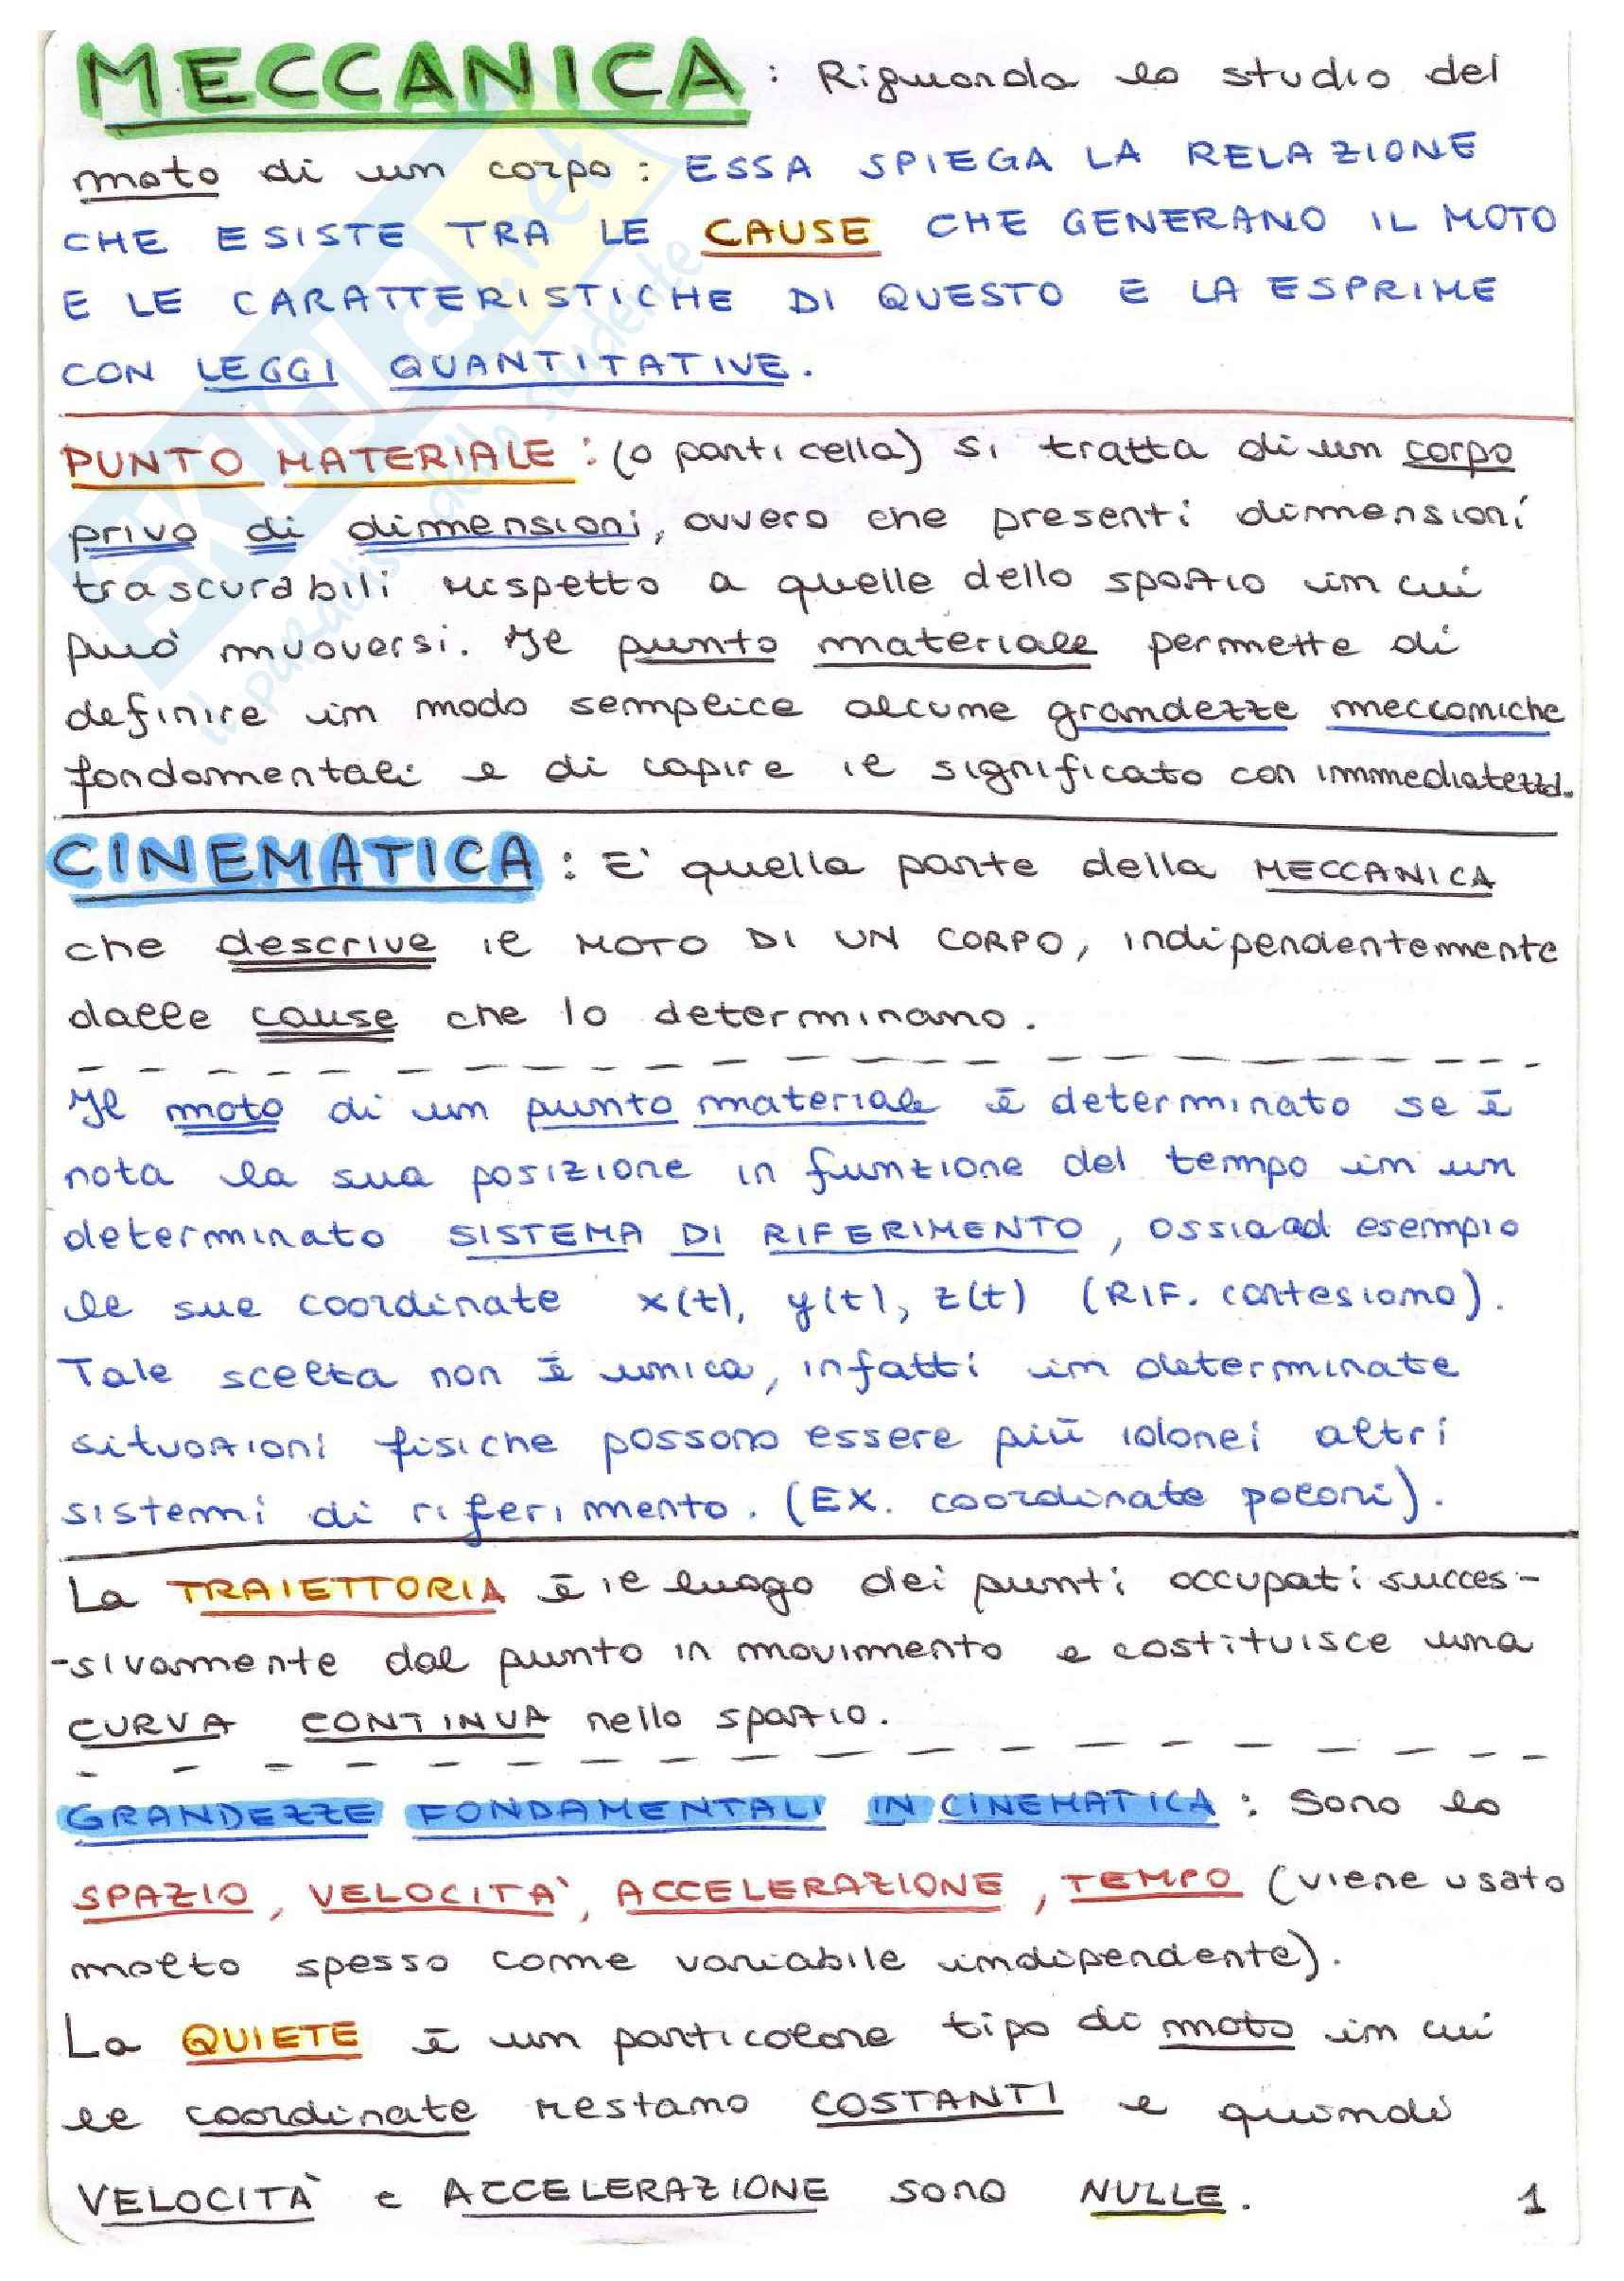 MECCANICA : Riguarda lo studio del
moto di un corpo : ESSA SPIEGA LA RELAZIONE
CHE ESISTE TRA LE CAUSE CHE GENERANO IL MOTO
E LE CARATTERISTICHE DI QUESTO E LA ESPRIME
CON LEGGI QUANTITATIVE.
PUNTO MATERIALE : (o particella) si tratta di un corpo
privo di dimensioni, ovvero che presenti dimensioni
trascurabili rispetto a quelle dello spazio in cui
può muoversi. Il punto materiale permette di
definire in modo semplice alcune grandezze meccaniche
fondamentali e di capire il significato con immediatezza.
CINEMATICA : E' quella parte della MECCANICA
che descrive il MOTO DI UN CORPO, indipendentemente
dalle cause che lo determinano.
Il moto di un punto materiale è determinato se è
nota la sua posizione in funzione del tempo in un
determinato SISTEMA DI RIFERIMENTO, ossia ad esempio
le sue coordinate x(t), y(t), z(t) (RIF. cartesiano).
Tale scelta non è unica, infatti in determinate
situazioni fisiche possono essere più idonei altri
sistemi di riferimento. (EX. coordinate polari).
La TRAIETTORIA è il luogo dei punti occupati succes-
-sivamente dal punto in movimento e costituisce una
CURVA CONTINUA nello spazio.
GRANDEZZE FONDAMENTALI IN CINEMATICA : Sono lo
SPAZIO, VELOCITA', ACCELERAZIONE, TEMPO (viene usato
molto spesso come variabile indipendente).
La QUIETE è un particolare tipo di moto in cui
le coordinate restano COSTANTI e quindi
VELOCITÀ e ACCELERAZIONE sono NULLE.
1
SKUOLA.net
il paradiso dello studente